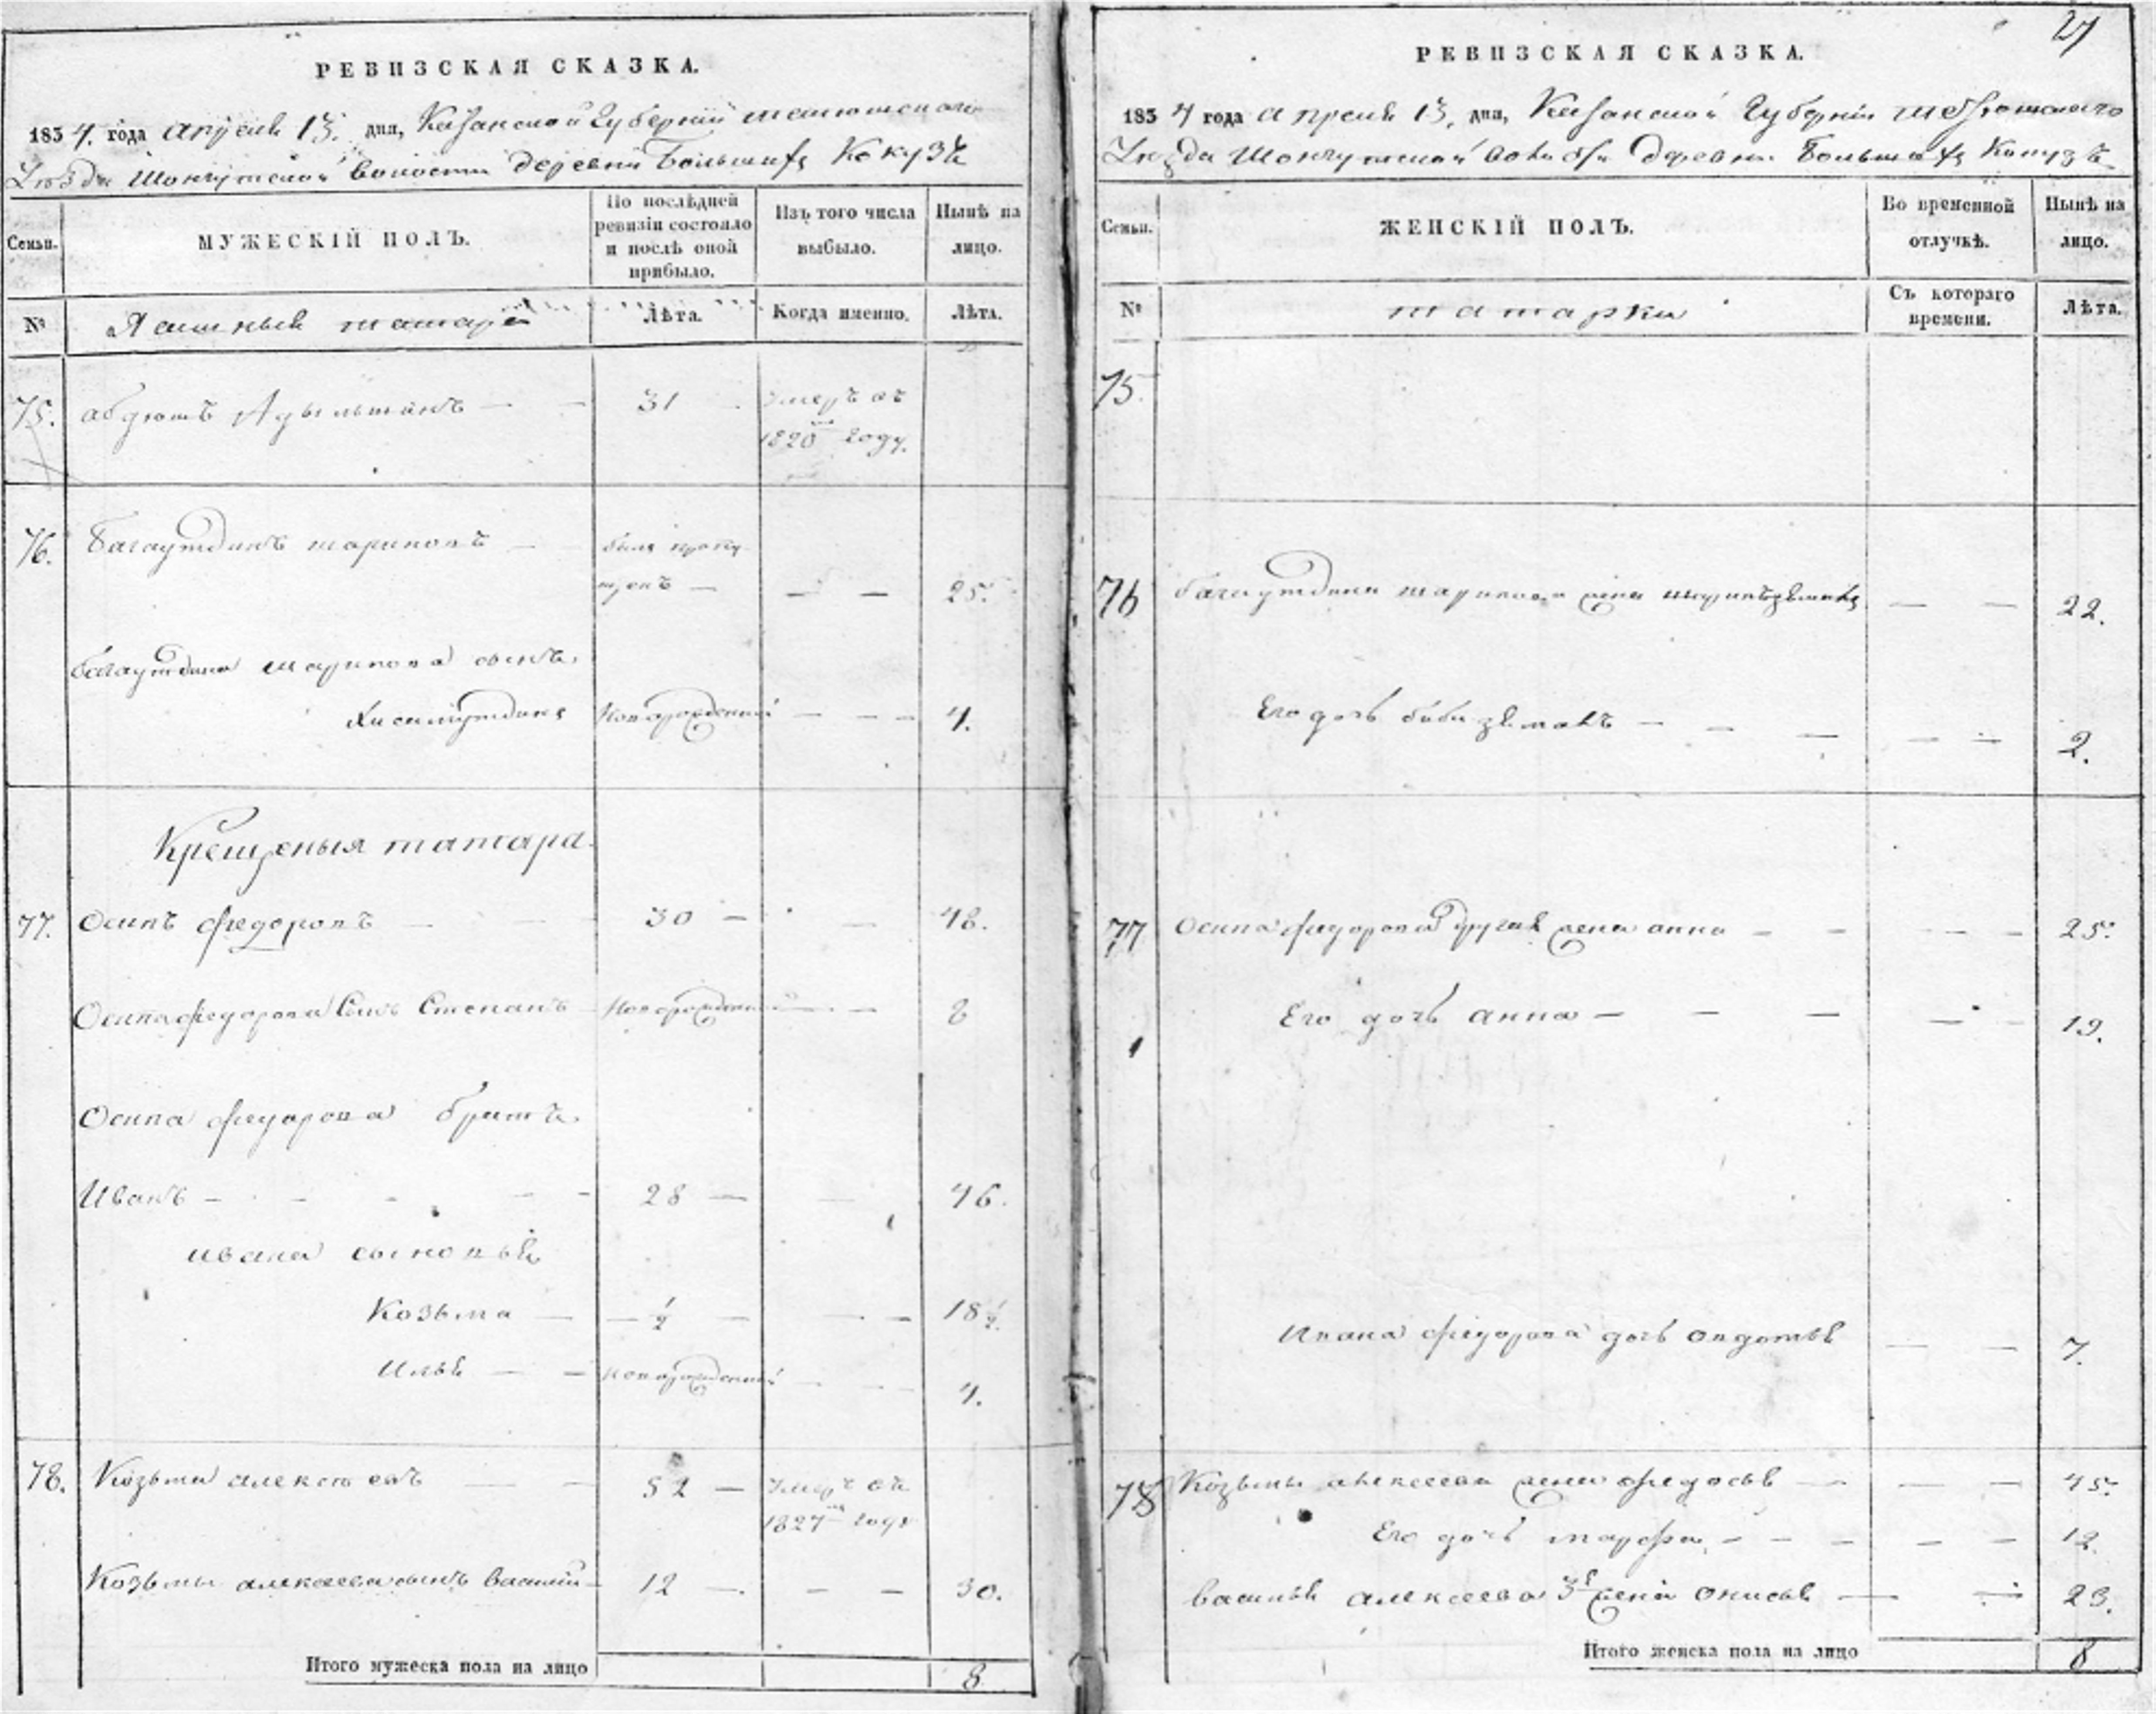 РЕВИЗСКАЯ СКАЗКА.
1834. года апреля 13. дня, Казанской Губернии тетюшского
Уезда Шонгутской волости деревни Большихъ Кокузъ
Семьи.
МУЖЕСКІЙ ПОЛЪ.
По послѣдней ревизіи состояло и послѣ оной прибыло.
Изъ того числа выбыло.
Нынѣ на лицо.
№
Ясашныя татара
Лѣта.
Когда именно.
Лѣта.
75. абдюшъ Адильшинъ — — 31 умеръ въ
1820 году.
76. Багаутдинъ шариповъ — был пропу-
щенъ — — — 25.
багаутдина шарипова сынъ
Хисамутдинъ Новорожденный — — 4.
Крещеныя татара.
77. Осипъ федоровъ — — 30 — — 48.
Осипа федорова Сынъ Степанъ Новорожденный — — 8
Осипа федорова братъ
Иванъ — — — — — 28 — — 46.
ивана сыновья
Козьма — — ½ — — — 18 ½.
Илья — — новорожденный — — 4.
78. Козьма алексеевъ — — 52 — умеръ въ
1827 году
Козьмы алексеева сынъ василий — 12 — — — 30.
Итого мужеска пола на лицо 8
27
РЕВИЗСКАЯ СКАЗКА.
1834 года апреля 13, дня, Казанской Губерніи тетюшскаго
Уезда Шонгутской волости деревни Большихъ Кокузъ
Семьи.
ЖЕНСКІЙ ПОЛЪ.
Во временной отлучкѣ.
Нынѣ на лицо.
№
татарки
Съ котораго времени.
Лѣта.
75.
76 багаутдина шарипова жена — — 22.
Его дочь бибизямалъ — — — — — 2.
77 Осипа федорова другая жена анна — — — — 25.
Его дочь анна — — — — — 19.
Ивана федорова дочь овдотья — — 7.
78 Козьмы алексеева жена федосья — — — 45.
Его дочь марфа, — — — — — 12.
василья алексеева 3я жена онисья — — 23.
Итого женска пола на лицо 8